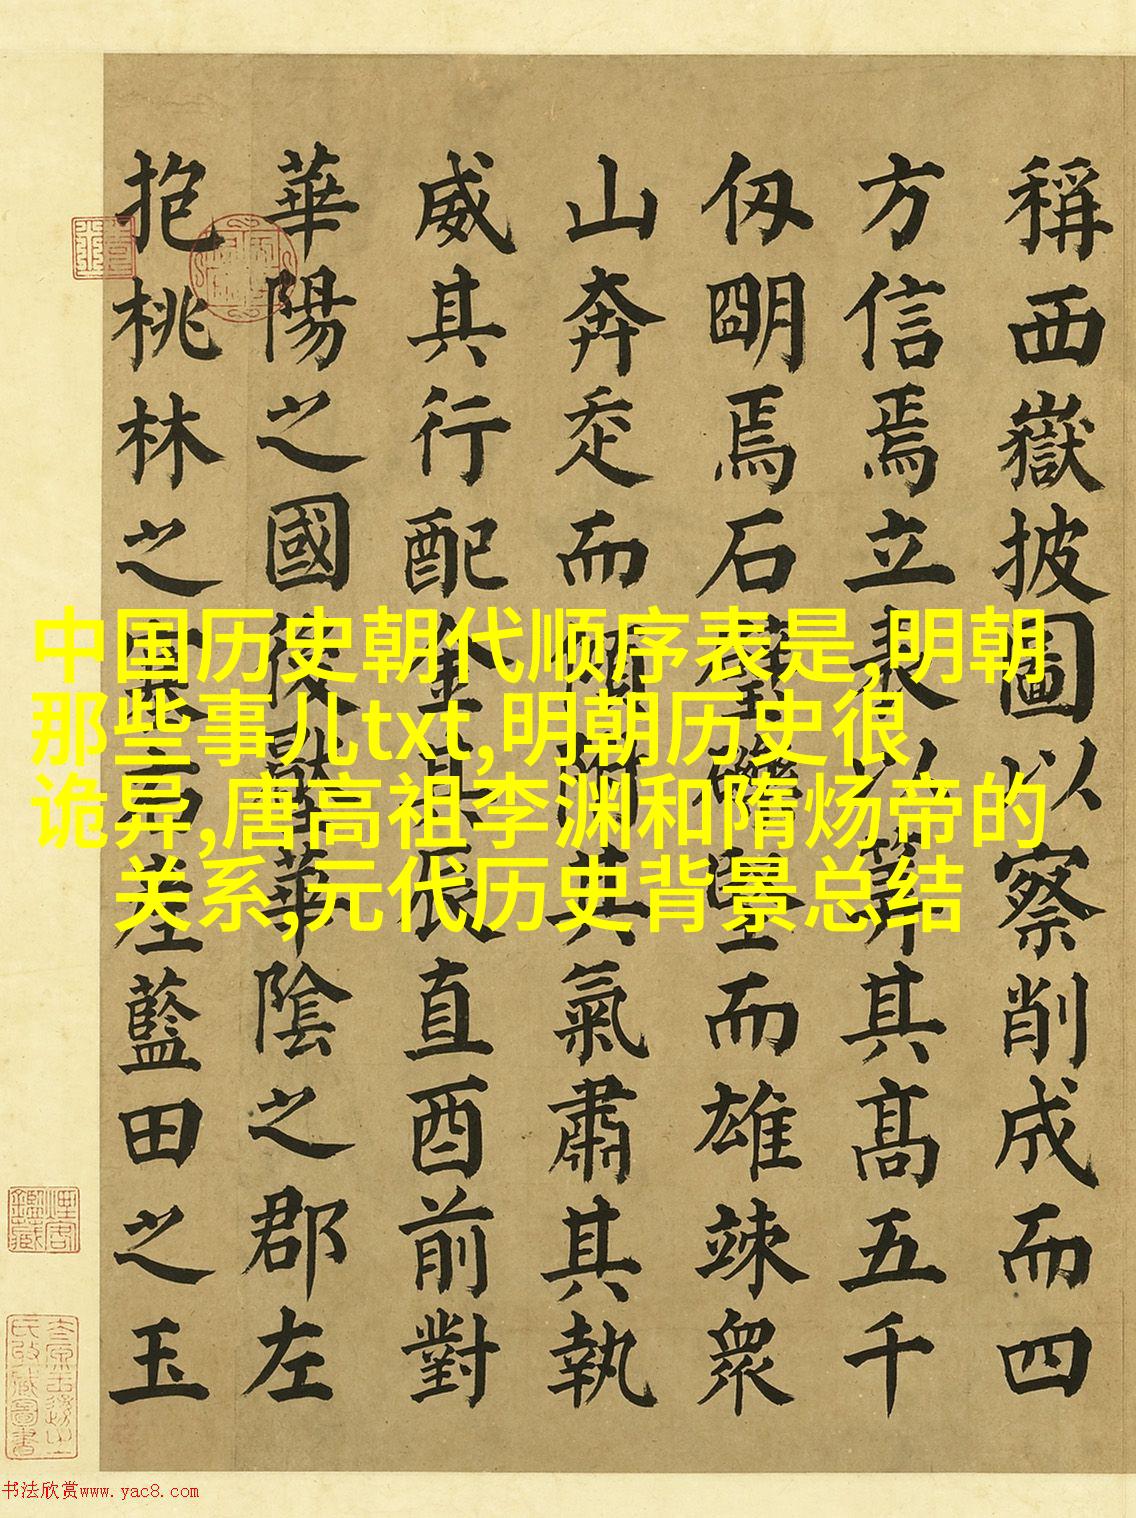 稱西嶽披圖以察削成而四
方信焉立表以筭其高五千
仭朙焉石而雄竦衆
山奔走而其氣肅其執
威其行配金其辰直酉前對
華陽之國後華陰之郡左
抱桃林之藍田之玉
中国历史朝代顺序表是,明朝
那些事儿txt,明朝历史很
诡异,唐高祖李渊和隋炀帝的
关系,元代历史背景总结
书法欣赏www.yac8.com